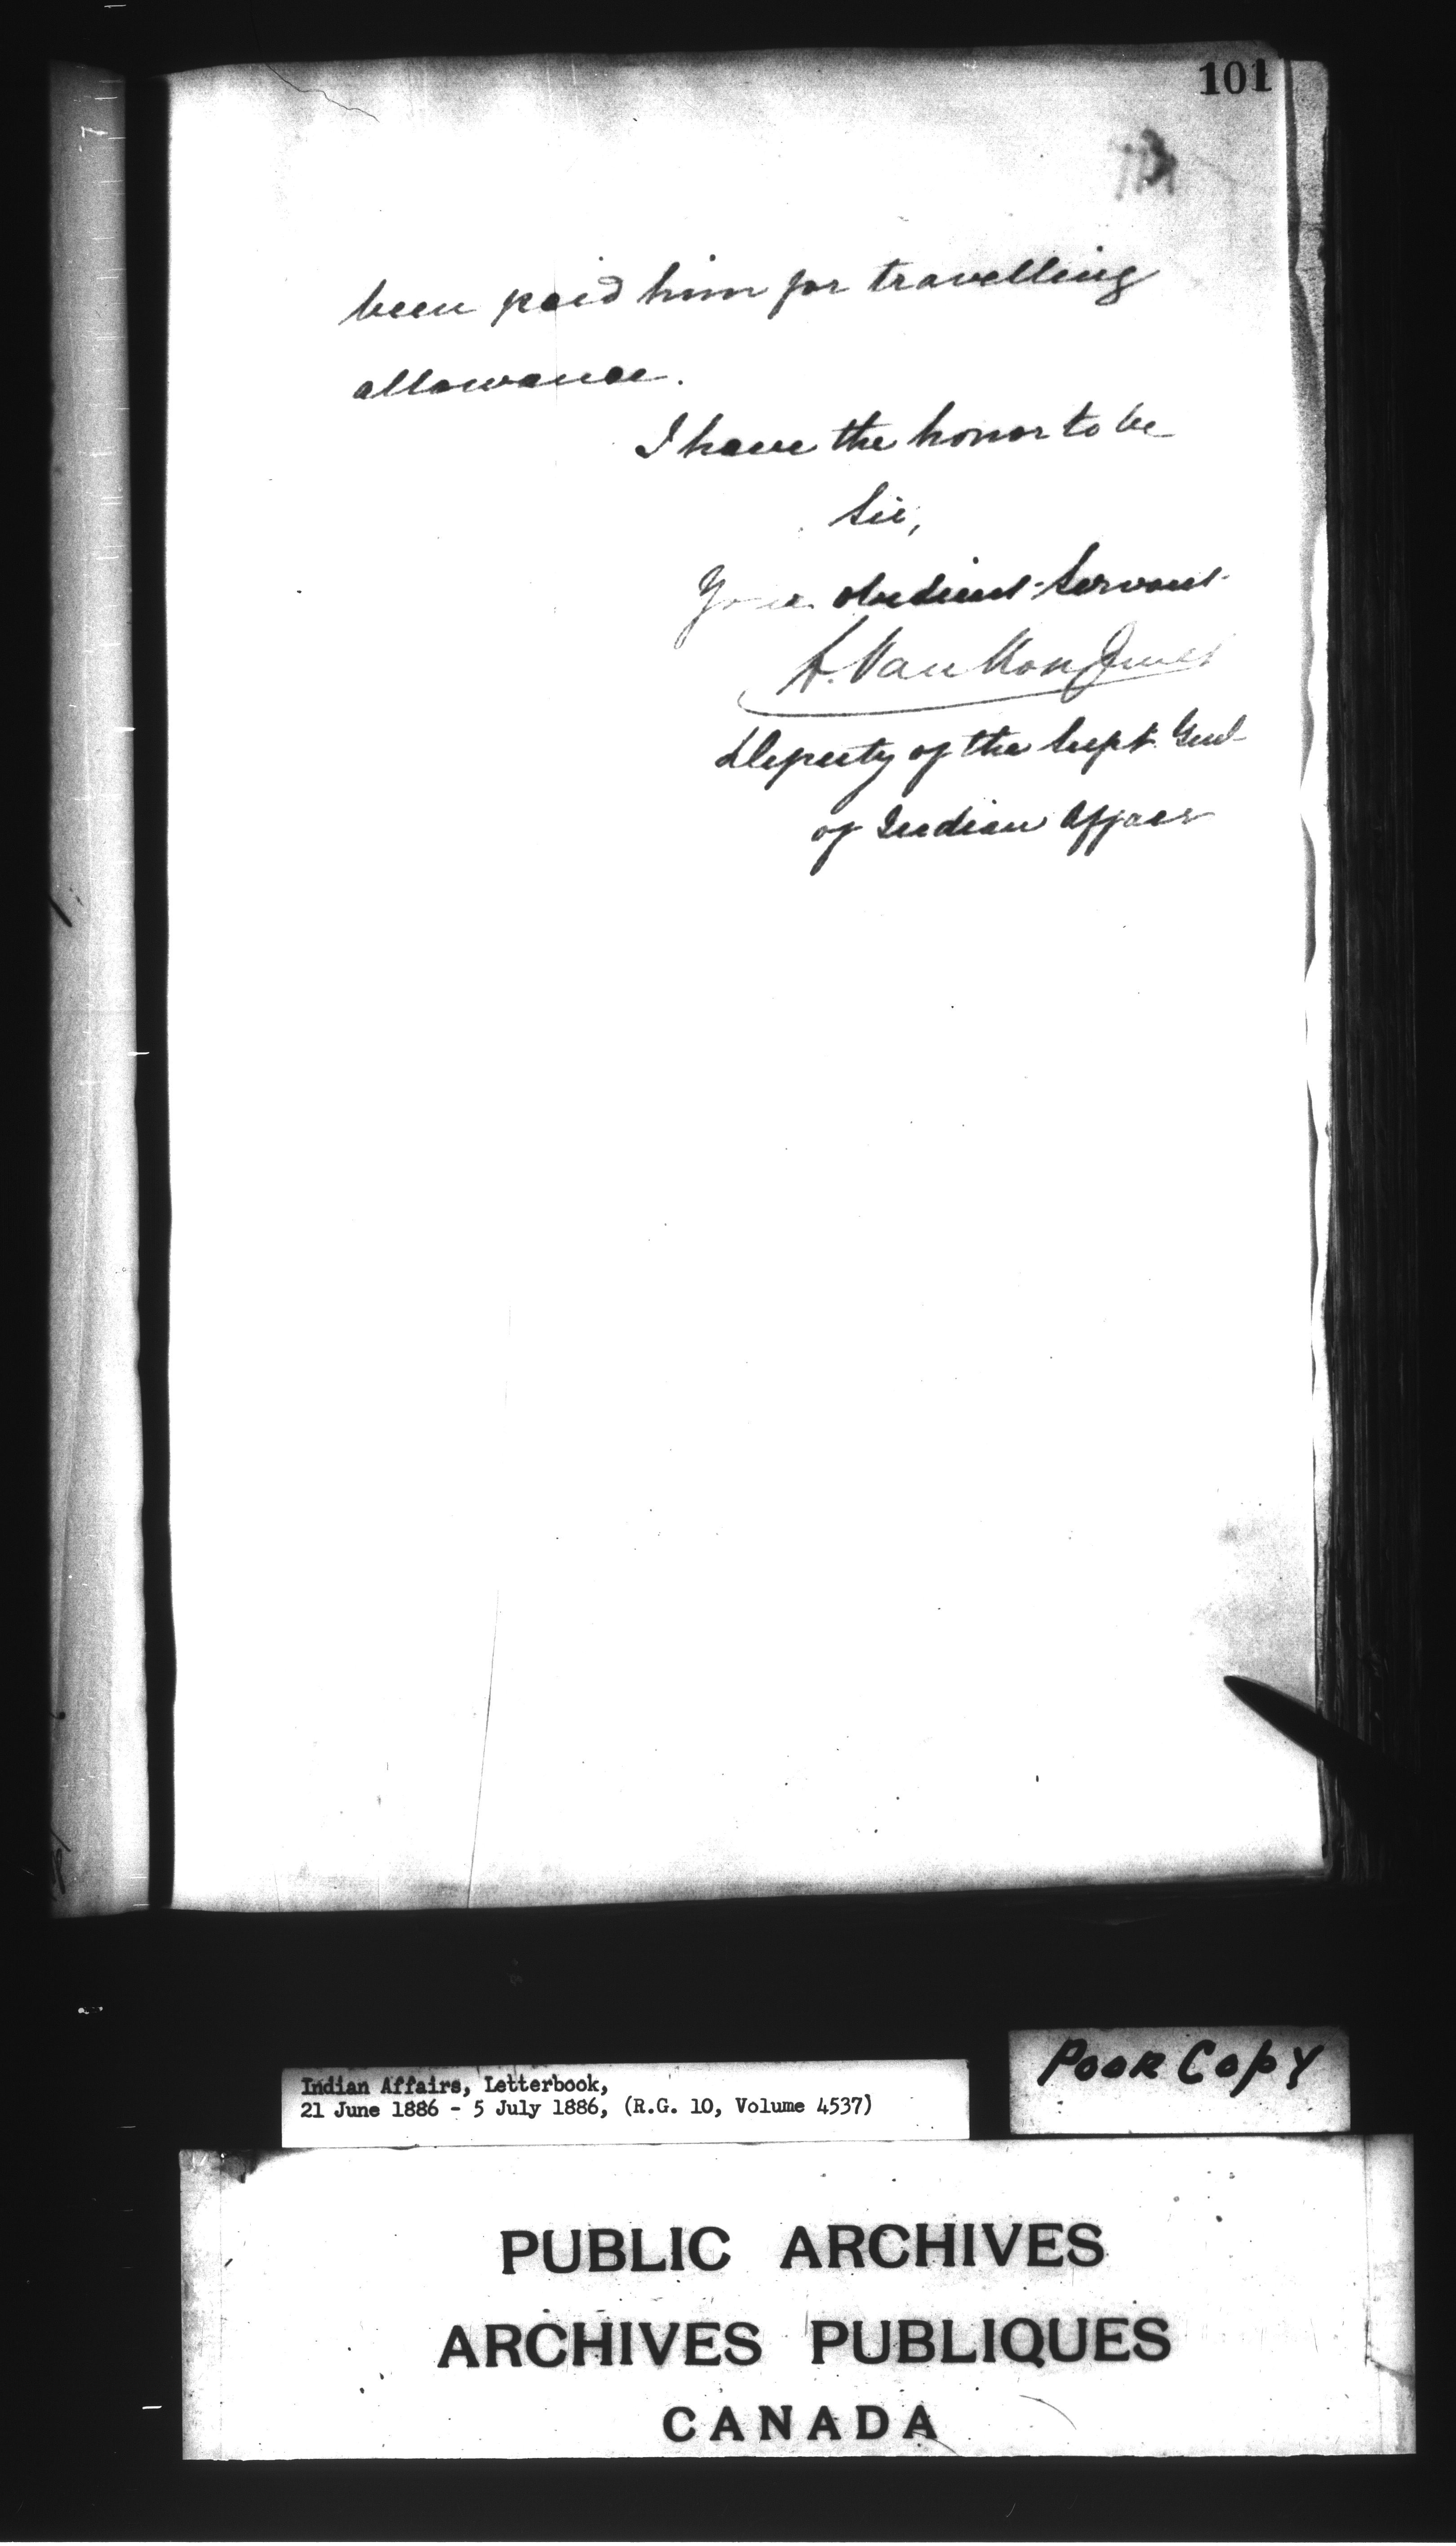 101
been paid him for travelling
allowance.
I have the honor to be
Sir,
Your obedient Servant
L. VanKoughnet
Deputy of the Supt. Genl
of Indian Affairs
Indian Affairs, Letterbook,
21 June 1886 - 5 July 1886, (R.G. 10, Volume 4537)
POOR COPY
PUBLIC ARCHIVES
ARCHIVES PUBLIQUES
CANADA